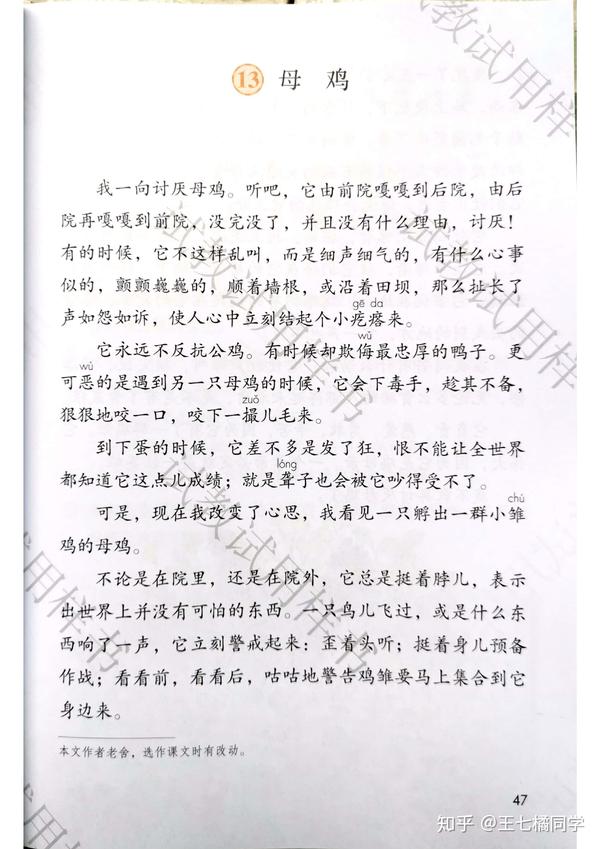 13 母 鸡
我一向讨厌母鸡。听吧，它由前院嘎嘎到后院，由后
院再嘎嘎到前院，没完没了，并且没有什么理由，讨厌！
有的时候，它不这样乱叫，而是细声细气的，有什么心事
似的，颤颤巍巍的，顺着墙根，或沿着田坝，那么扯长了
gē da
声如怨如诉，使人心中立刻结起个小疙瘩来。
wǔ
它永远不反抗公鸡。有时候却欺侮最忠厚的鸭子。更
wù
可恶的是遇到另一只母鸡的时候，它会下毒手，趁其不备，
zuǒ
狠狠地咬一口，咬下一撮儿毛来。
到下蛋的时候，它差不多是发了狂，恨不能让全世界
lóng
都知道它这点儿成绩；就是聋子也会被它吵得受不了。
chú
可是，现在我改变了心思，我看见一只孵出一群小雏
鸡的母鸡。
不论是在院里，还是在院外，它总是挺着脖儿，表示
出世界上并没有可怕的东西。一只鸟儿飞过，或是什么东
西响了一声，它立刻警戒起来：歪着头听；挺着身儿预备
作战；看看前，看看后，咕咕地警告鸡雏要马上集合到它
身边来。
本文作者老舍，选作课文时有改动。
47
知乎 @王七橘同学
试教试用样
试教试用样书
试教试用样书
试用样书